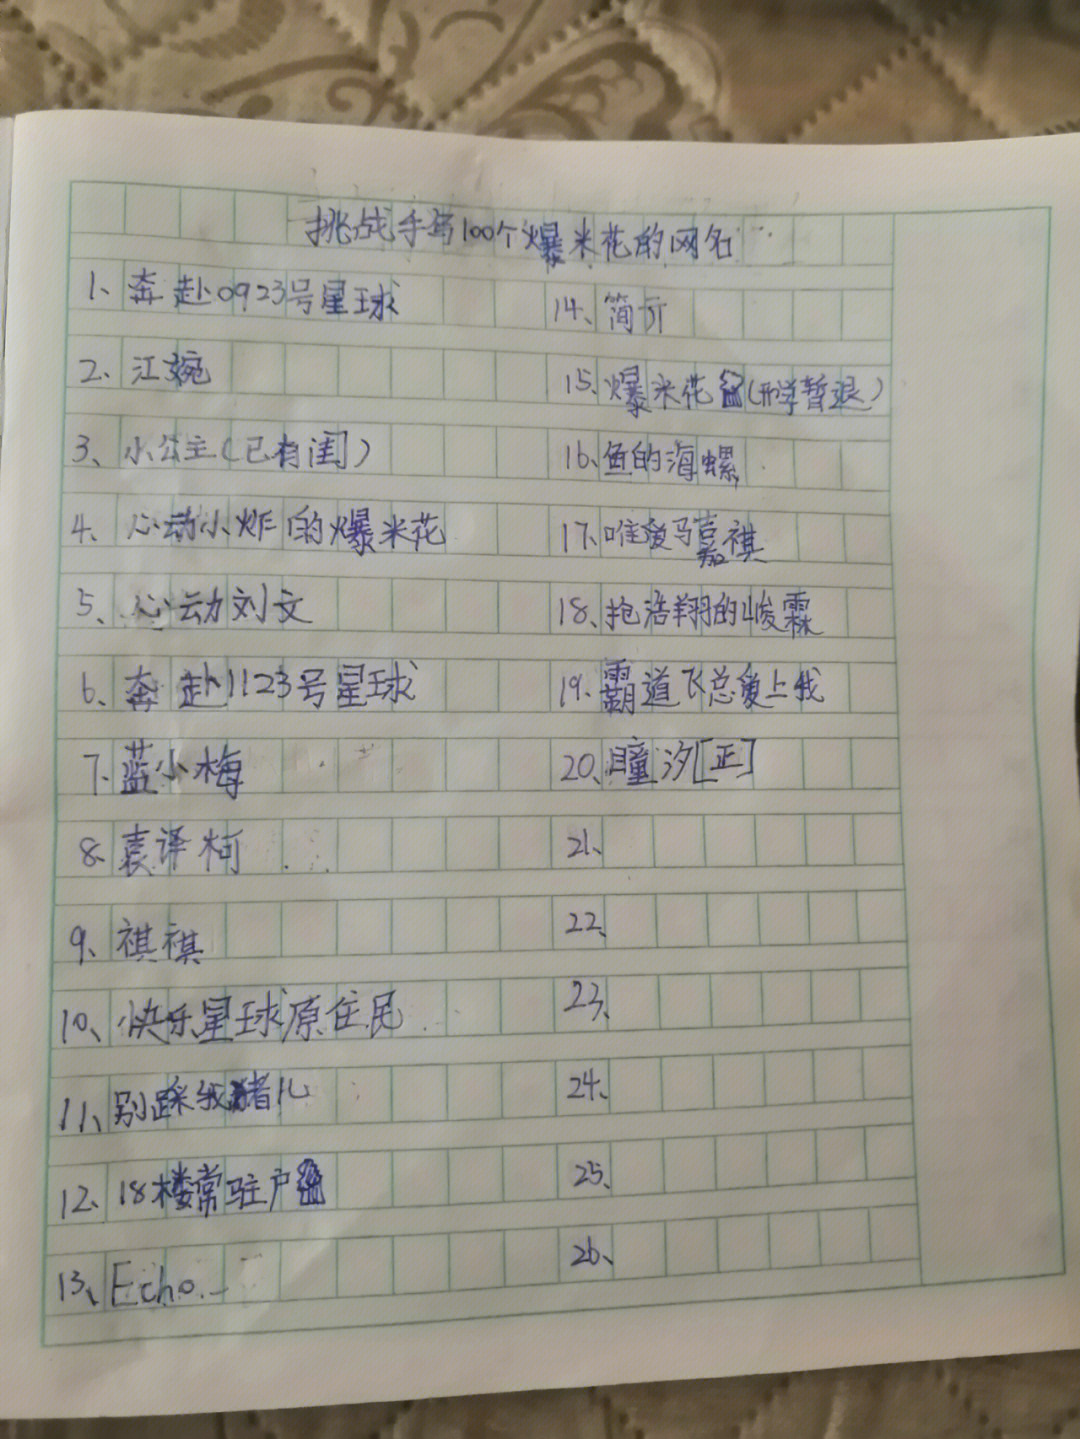 挑战手写100个爆米花的网名
1、奔赴0923号星球
2、江婉
3、小公主(已有闺)
4、心动小炸的爆米花
5、心动刘文
6、奔赴1123号星球
7、蓝小梅
8、袁译柯
9、祺祺
10、快乐星球原住民
11、别踩我猪儿
12、18楼常驻户
13、Echo.
14、简亓
15、爆米花(开学暂退)
16、鱼的海螺
17、唯爱马嘉祺
18、抱浩翔的峻霖
19、霸道飞总爱上我
20、瞳汐[正]
21、
22、
23、
24、
25、
26、